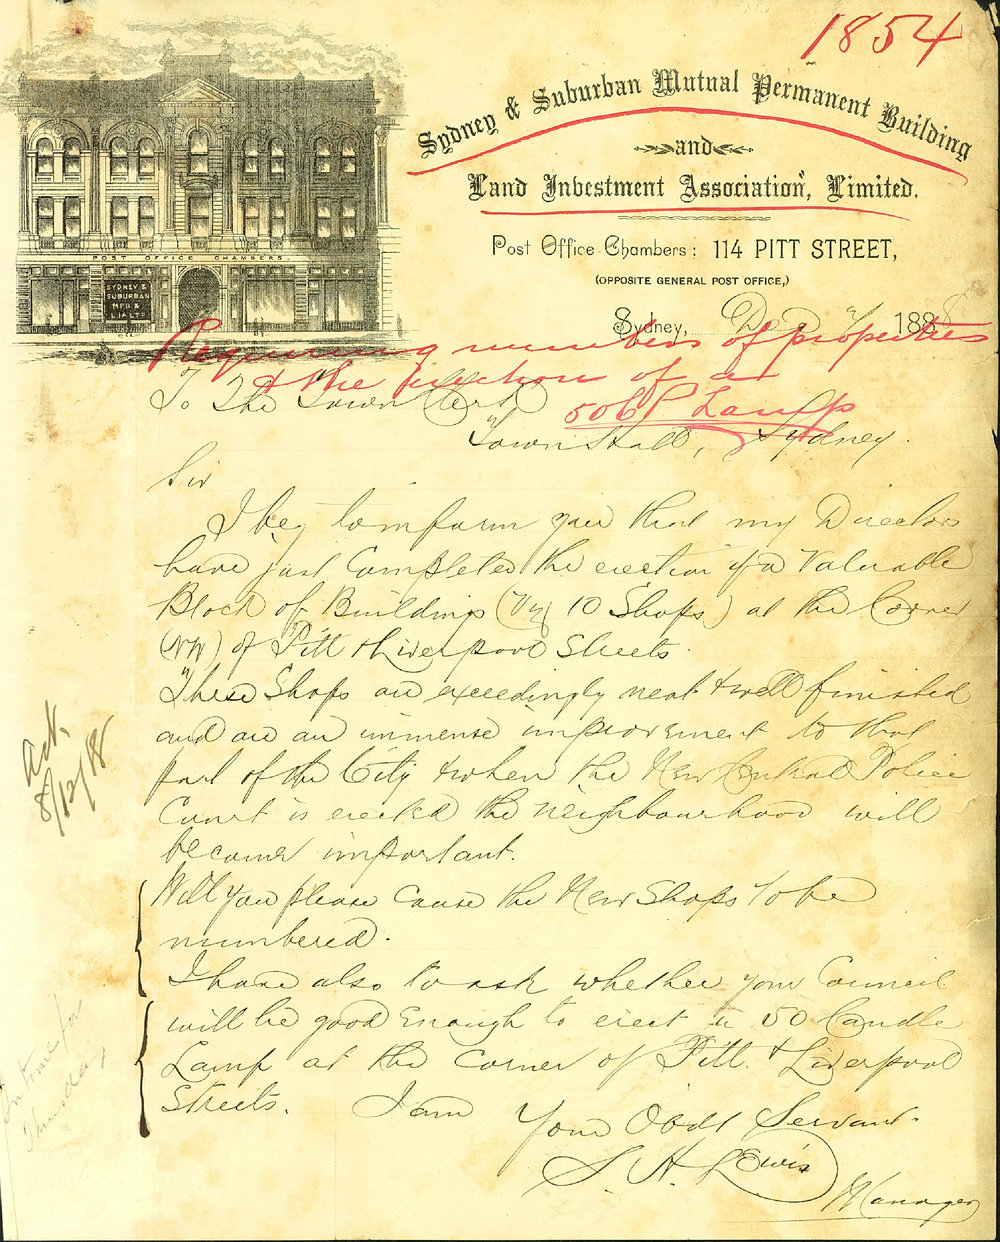 1854
Sydney & Suburban Mutual Permanent Building
and
Land Investment Association, Limited.
Post Office Chambers: 114 PITT STREET,
(OPPOSITE GENERAL POST OFFICE,)
Sydney, Dec 7 1888
POST OFFICE CHAMBERS
SYDNEY &
SUBURBAN
M.P.B. &
L.I.A. LTD
Requiring numbers of properties
& the erection of a
50 CP Lamp
To The Town Clerk
Town Hall, Sydney.
Sir
I beg to inform you that my Directors
have just Completed the erection of a Valuable
Block of Buildings (Viz 10 Shops) at the Corner
(NW) of Pitt & Liverpool Streets.
These Shops are exceedingly neat & well finished
and are an immense improvement to that
part of the City & when the New Central Police
Court is erected the neighbourhood will
become important.
Will you please Cause the New Shops to be
numbered.
I have also to ask whether your Council
will be good Enough to erect a 50 Candle
Lamp at the Corner of Pitt & Liverpool
Streets. I am
Your Obdt Servant.
S. H. Lewis
Manager
Ack.
8/12/88
In time for
Thursday